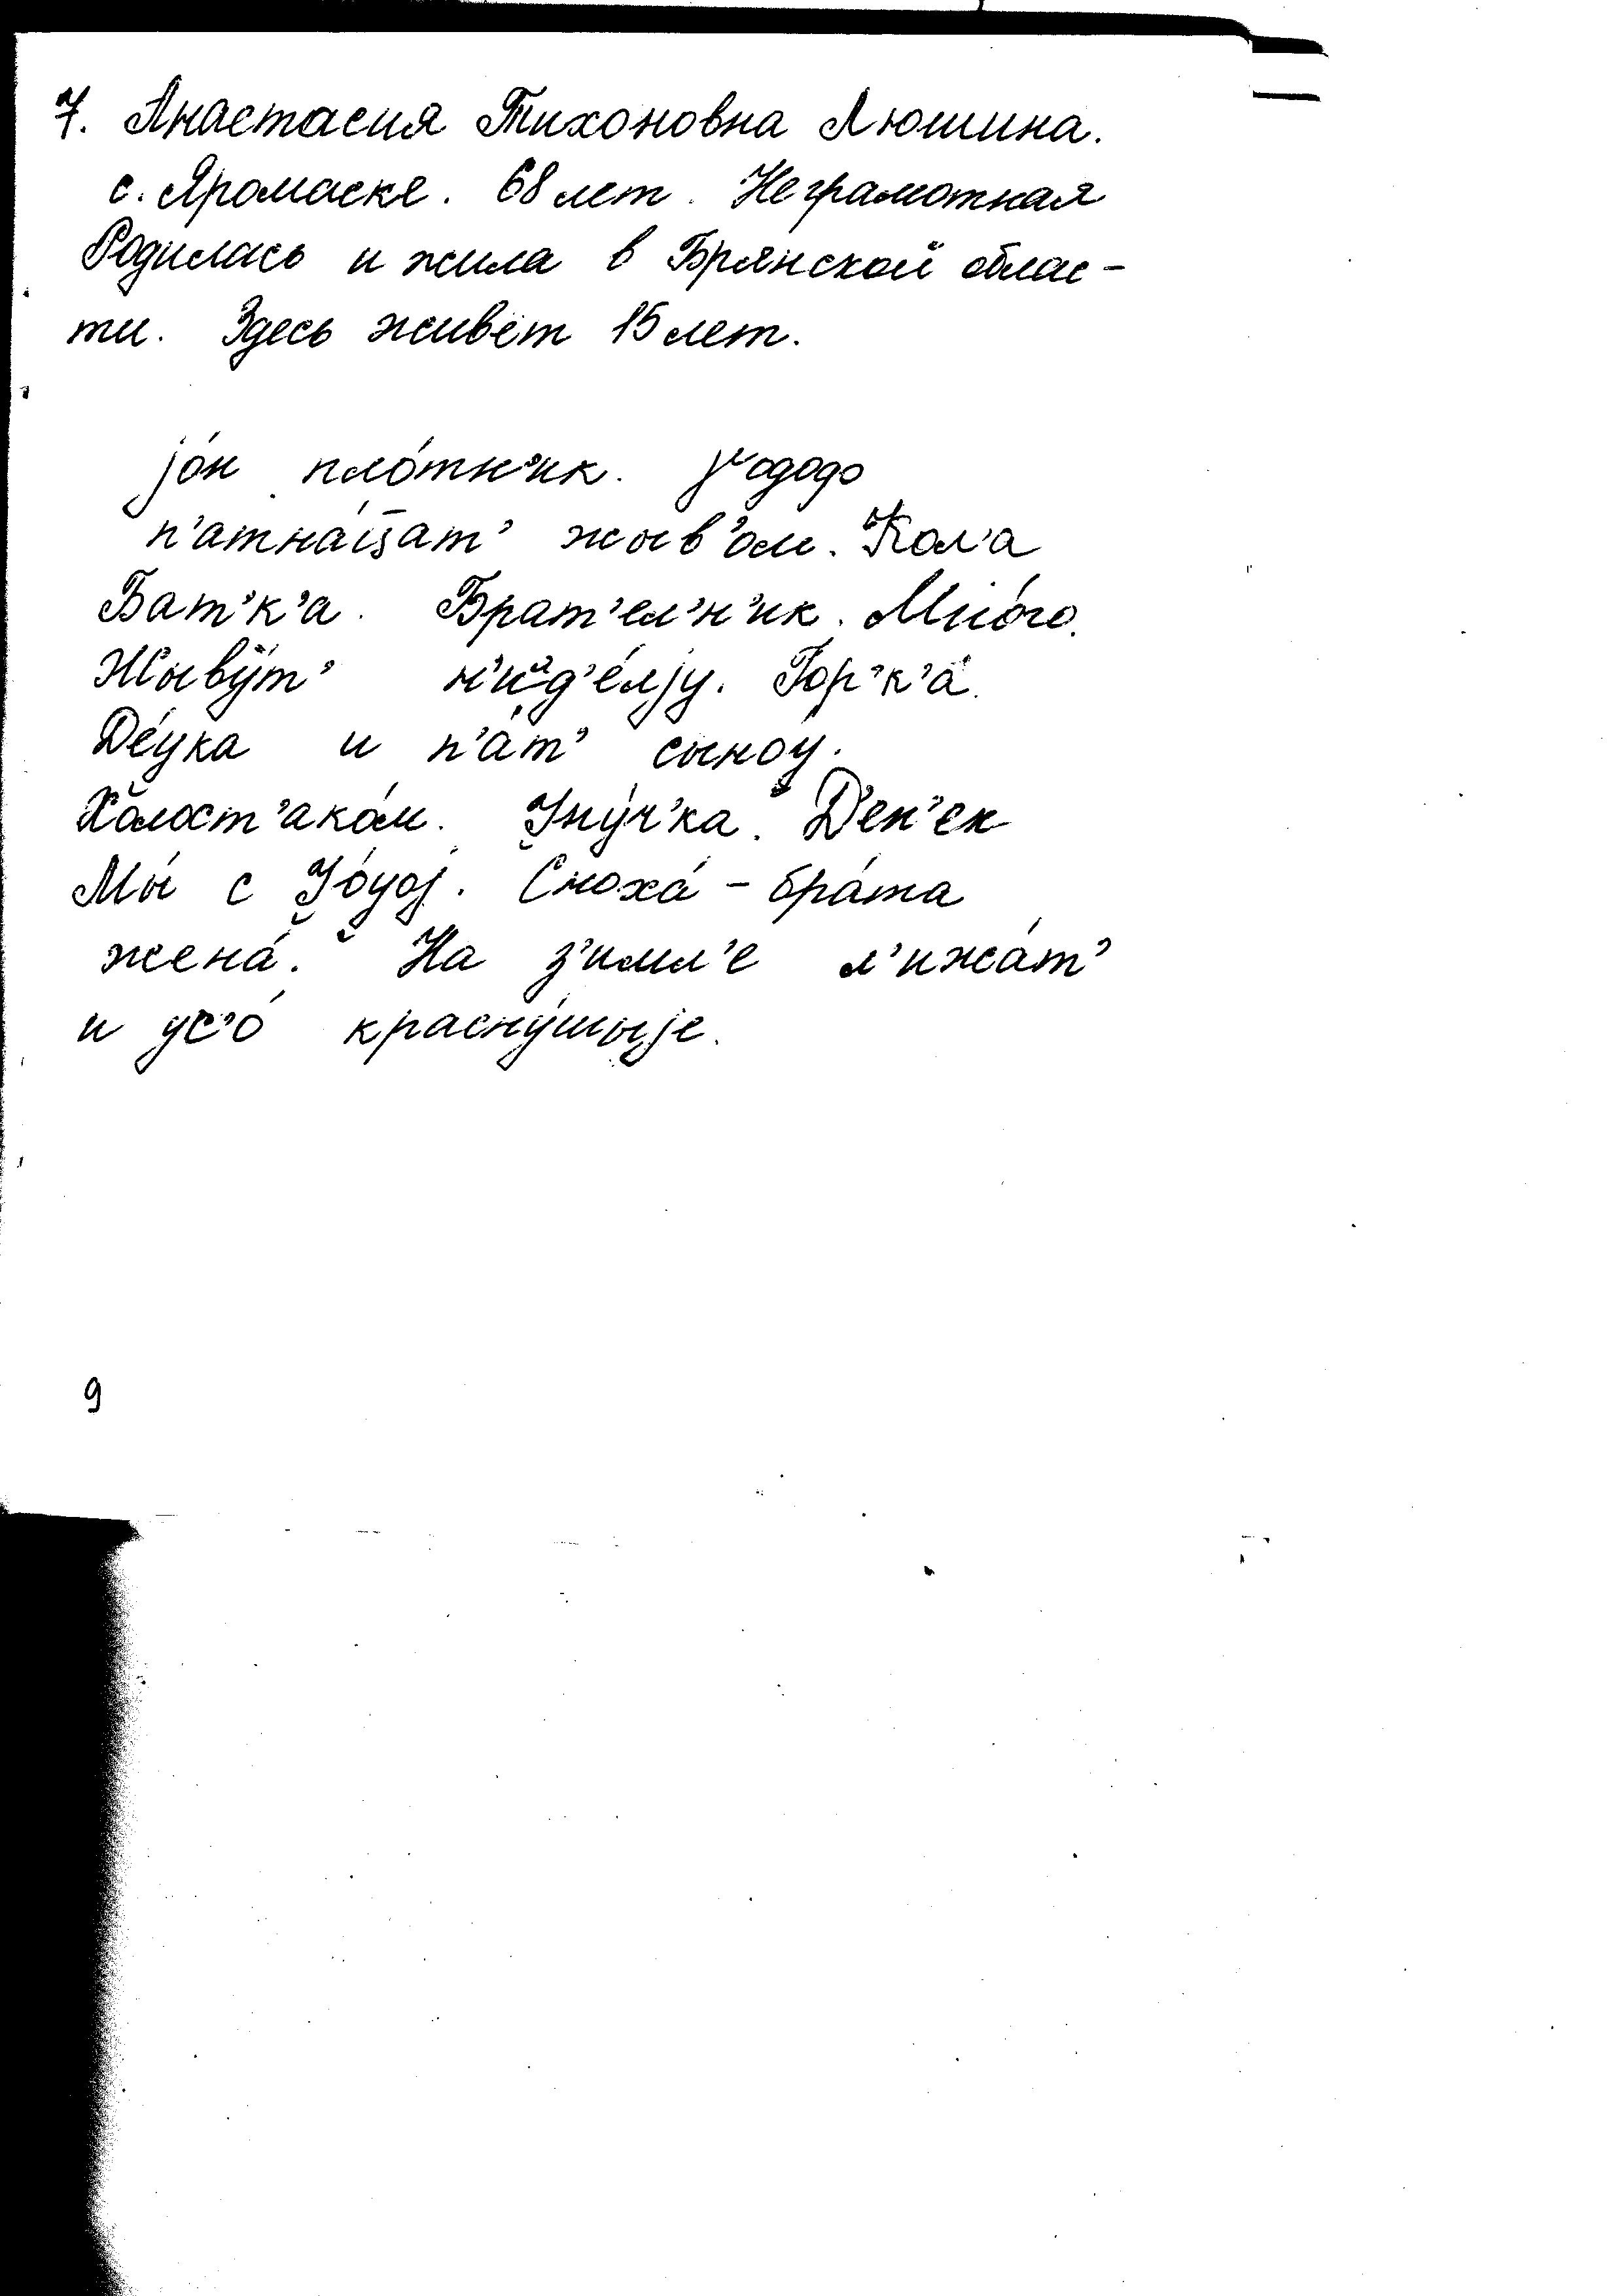 7. Анастасия Тихоновна Люшина.
с. Яромаске. 68 лет. Неграмотная
Родилась и жила в Брянской облас-
ти. Здесь живёт 15 лет.
jо́н пло́тн'ик.
п'атна́ц̄ат' жыв'ом. Кол'а
Бат'к'а. Брат'ел'н'ик. Мно́го.
Жыву́т' н'иэд'е́лjу. Гор'к'а́.
Де́ўка и п'а́т' сыноў.
Халост'ако́м. Ўну́ч'ка. Д'ен'ек
Мы́ с Ўо́ўоj. Сноха́ - бра́та
жена́. На з'имл'е л'ижа́т'
и ус'о́ красну́шыjе.
9